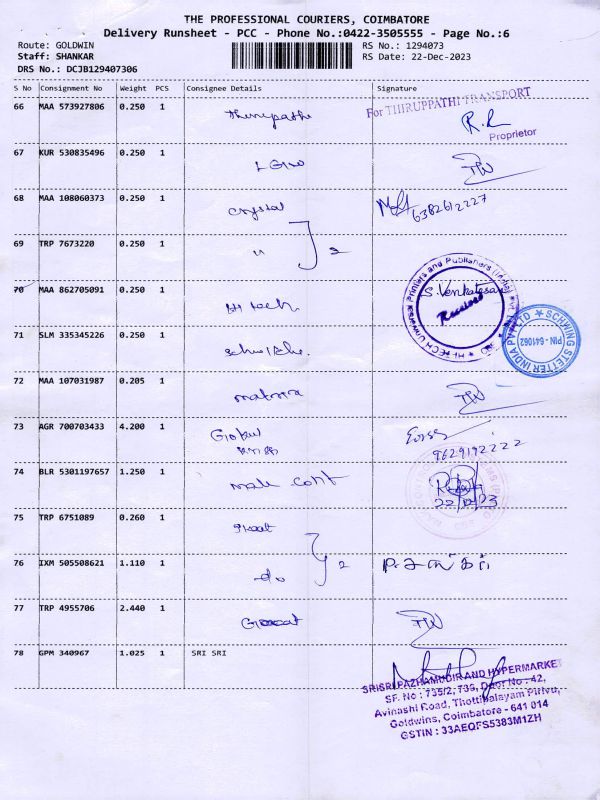 THE PROFESSIONAL COURIERS, COIMBATORE
Delivery Runsheet - PCC - Phone No.:0422-3505555 - Page No.:6
Route: GOLDWIN
Staff: SHANKAR
DRS No.: DCJB129407306
RS No.: 1294073
RS Date: 22-Dec-2023
S No Consignment No Weight PCS Consignee Details Signature
66 MAA 573927806 0.250 1 Thirupathi
For THIRUPPATHI TRANSPORT
R.R
Proprietor
67 KUR 530835496 0.250 1
68 MAA 108060373 0.250 1 Crystal
6382612227
69 TRP 7673220 0.250 1 " 2
70 MAA 862705091 0.250 1 Hi tech
HI-TECH Universal Printers and Publishers (India) Pvt Ltd
CBE
S. Venkatesan
Received
71 SLM 335345226 0.250 1
SCHWING STETTER INDIA PVT LTD
PIN - 641062
72 MAA 107031987 0.205 1
73 AGR 700703433 4.200 1
9629192222
74 BLR 5301197657 1.250 1 Mak Cont
22/12/23
75 TRP 6751089 0.260 1
76 IXM 505508621 1.110 1 do 2
77 TRP 4955706 2.440 1
78 GPM 340967 1.025 1 SRI SRI
SRISRI PAZHAMUDIR AND HYPERMARKET
SF. No : 735/2, 736, Door No : 42,
Avinashi Road, Thottipalayam Pirivu,
Goldwins, Coimbatore - 641 014
GSTIN : 33AEQFS5383M1ZH